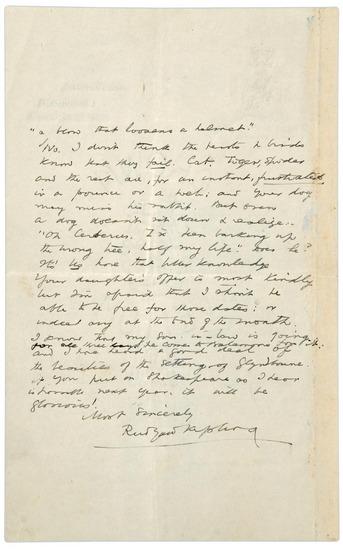 "a blow that loosens a helmet."
No. I don't think the beasts & birds
know that they fail. Cat, Tiger, Spider
and the rest are, for an instant, frustrated
in a pounce or a web; and your dog
may miss his rabbit. But even
a dog doesn't sit down & realize:-
"Oh Cerberus. I've been barking up
the wrong tree, half my life" Does he?
It's us have that bitter knowledge
Your daughters offer is most kindly
but I'm afraid that I shan't be
able to be free for those dates: or
indeed any at the end of the month.
I know that my son-in-law is going
for he comes to for it:
and I have heard a good deal of
the beauties of the setting of Glyndbourne.
If you put on Shakespeare as I hear
is possible next year, it will be
glorious!
Most sincerely
Rudyard Kipling